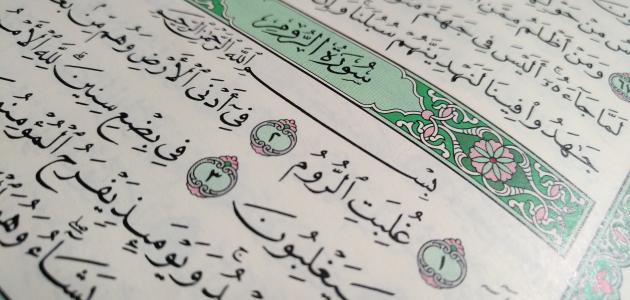 مِنْ حَوْ
وَمَنْ أَظْلَمُ مِمَّنِ
لَمَّا جَآءَهُۥٓ أَلَيْسَ فِى جَهَنَّمَ مَثْ
جَٰهَدُوا۟ فِينَا لَنَهْدِيَنَّهُمْ سُبُلَنَا وَإِنَّ
سُورَةُ الرُّومِ
بِسْمِ ٱللَّهِ ٱلرَّحْمَٰنِ ٱلرَّحِيمِ
١ غُلِبَتِ ٱلرُّومُ ٢ فِىٓ أَدْنَى ٱلْأَرْضِ وَهُم مِّنۢ بَعْ
سَيَغْلِبُونَ ٣ فِى بِضْعِ سِنِينَ ۗ لِلَّهِ ٱلْأَمْرُ
دُ ۚ وَيَوْمَئِذٍ يَفْرَحُ ٱلْمُؤْمِنُو
يَشَآءُ ۖ وَهُوَ